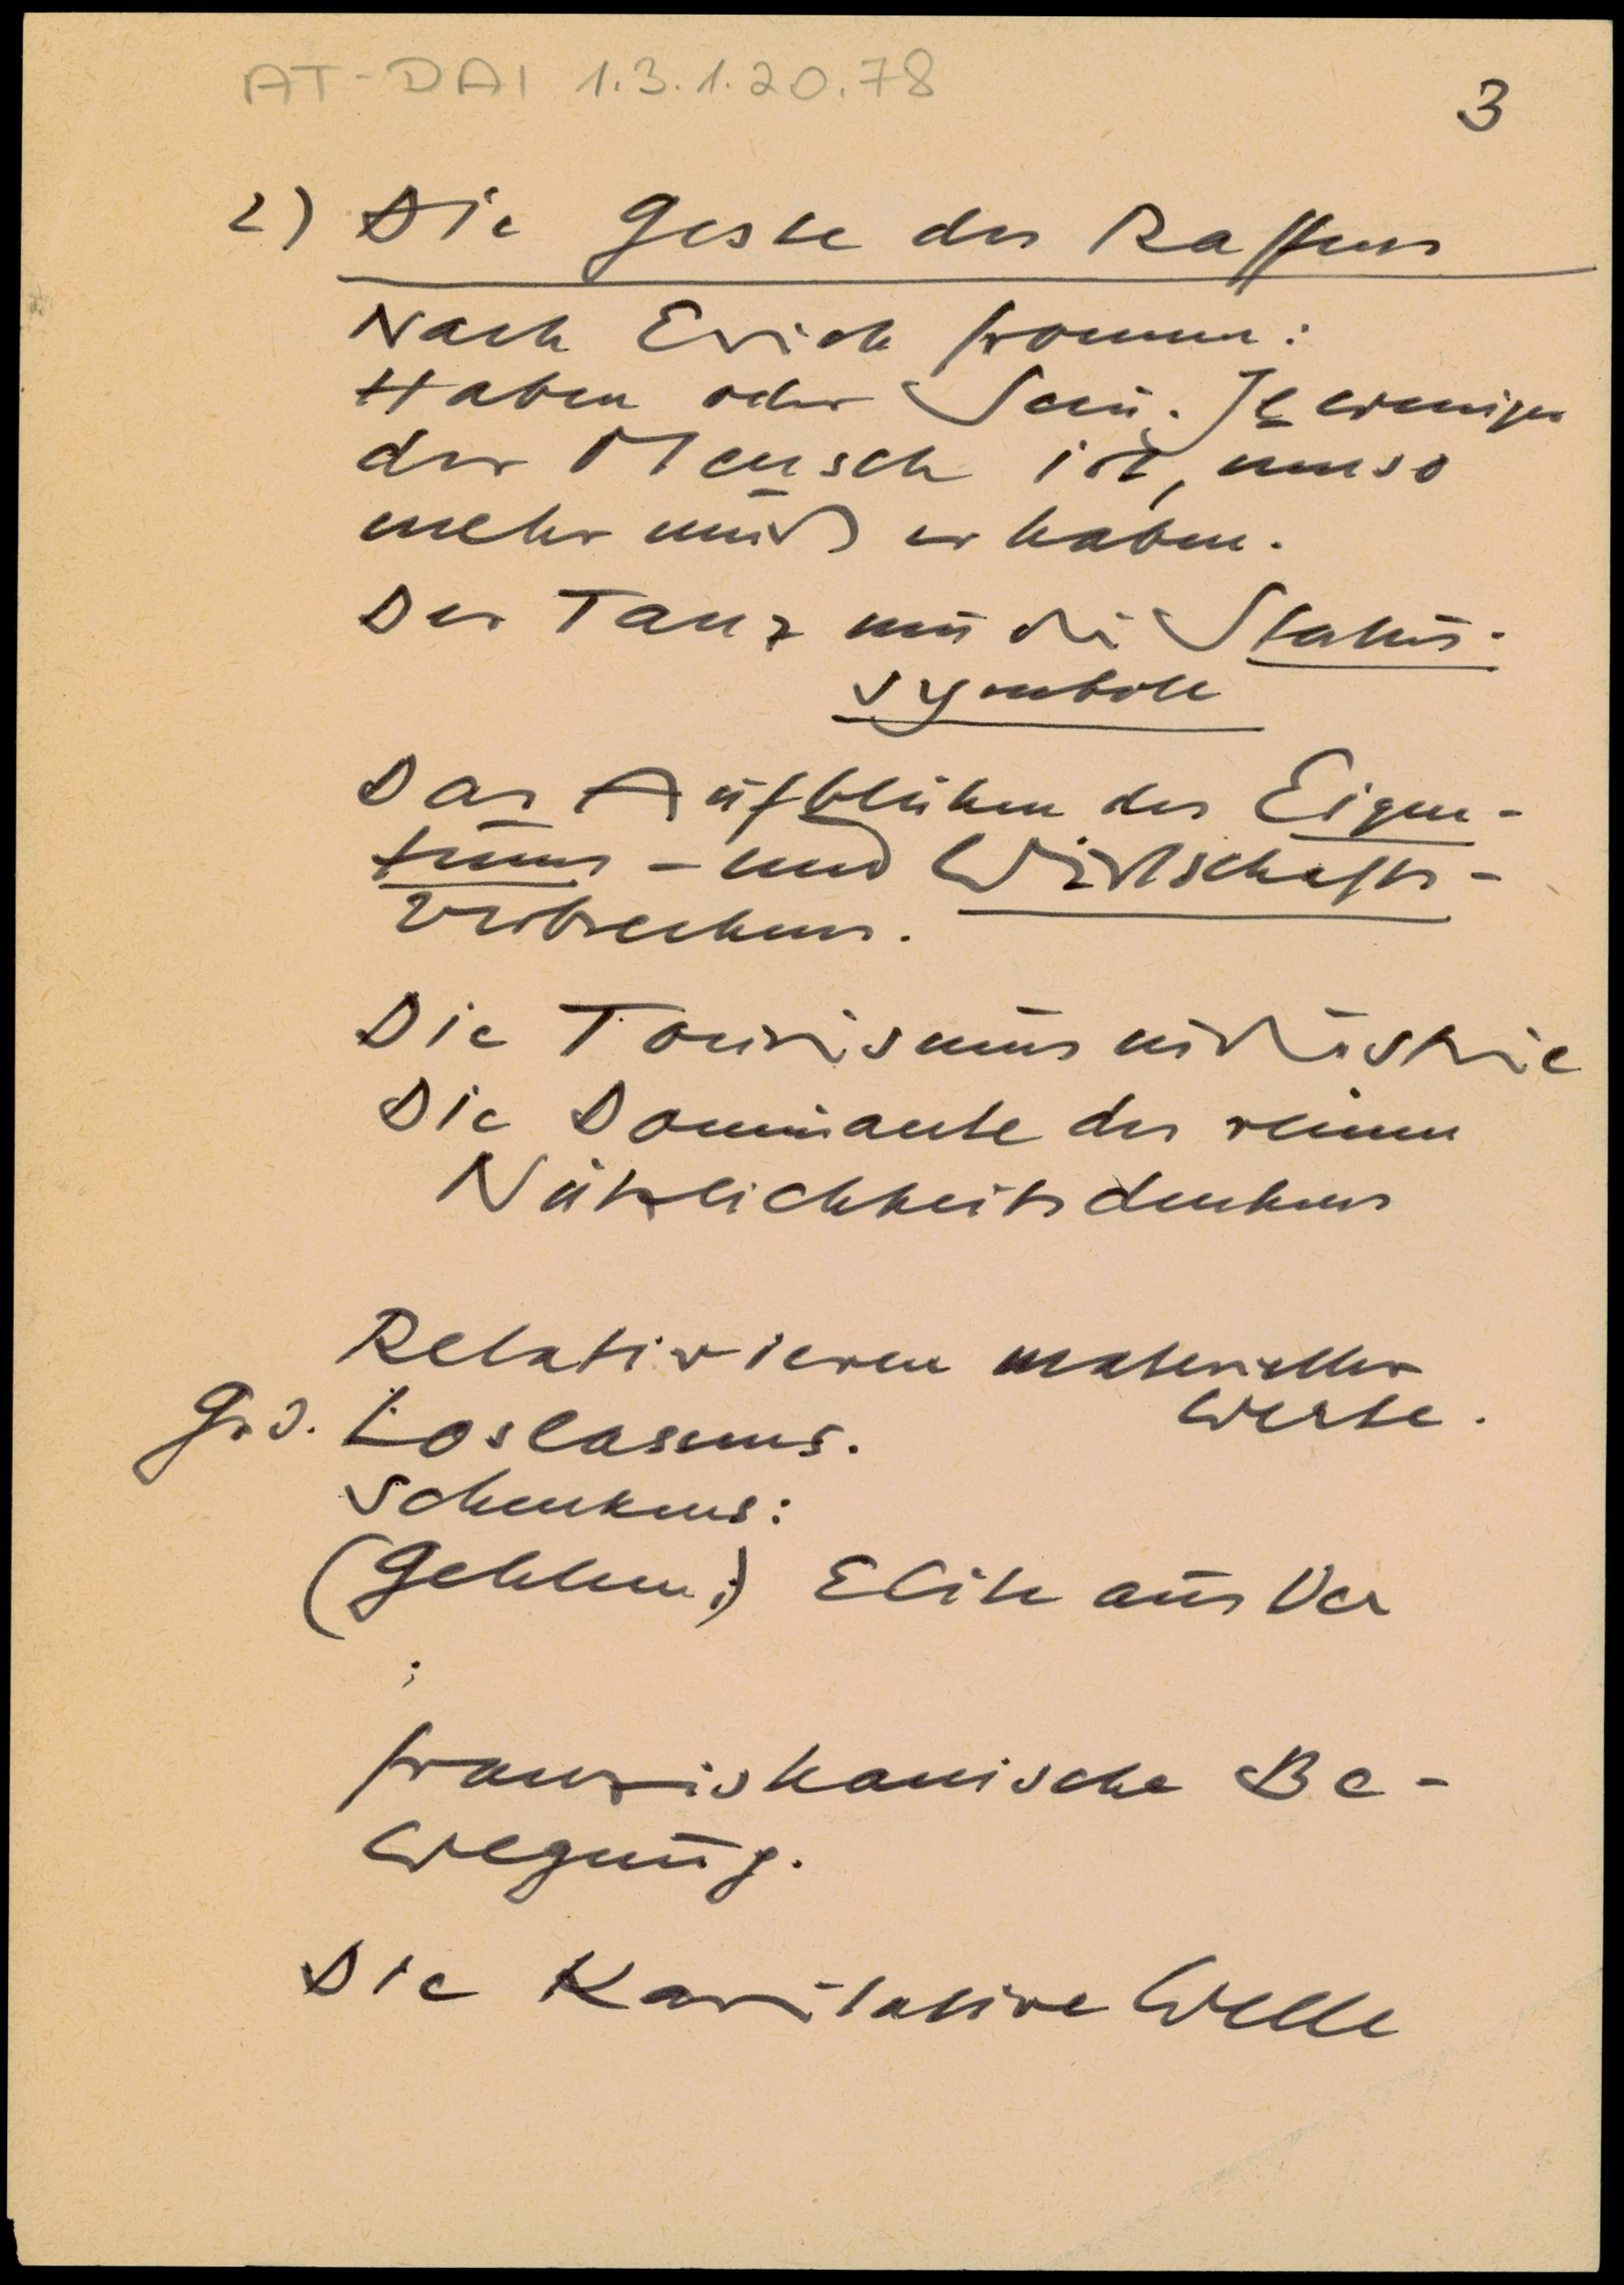 AT-DAI 1.3.1.20.78
3
2) Die Geste des Raffens
Nach Erich Fromm:
Haben oder Sein. Je weniger
der Mensch ist, umso
mehr muß er haben.
Der Tanz um die Status-
symbole
Das Aufblühen des Eigen-
tums- und Wirtschafts-
verbrechens.
Die Tourismusindustrie
Die Dominante des reinen
Nützlichkeitsdenkens
Relativieren materieller
Werte.
G. d. Loslassens.
Schenkens:
(Gehlen:) Elite aus Ver
;
franziskanische Be-
wegung.
Die Karitative Welle